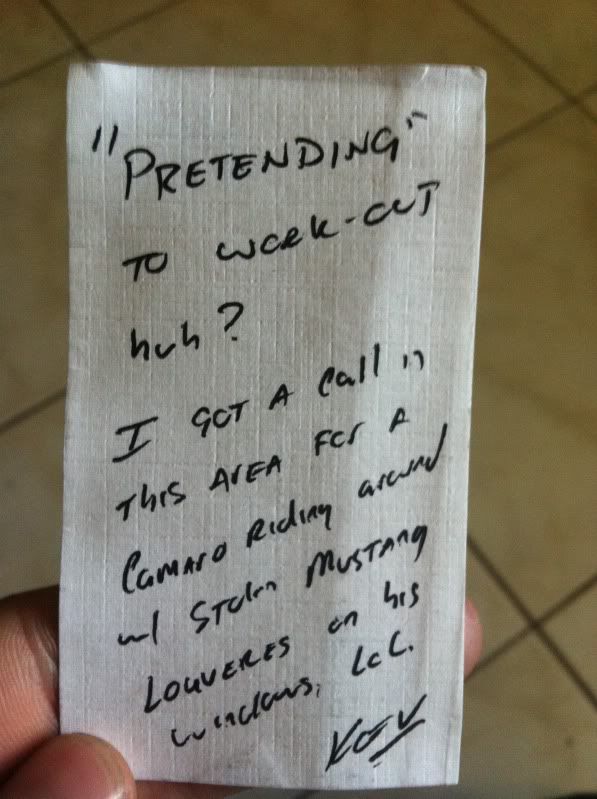 "PRETENDING"
TO WORK-OUT
huh?
I GOT A Call in
this AREA FOR A
CAMARO Riding around
w/ Stolen MUSTANG
LOUVERES on his
windows, LoL.